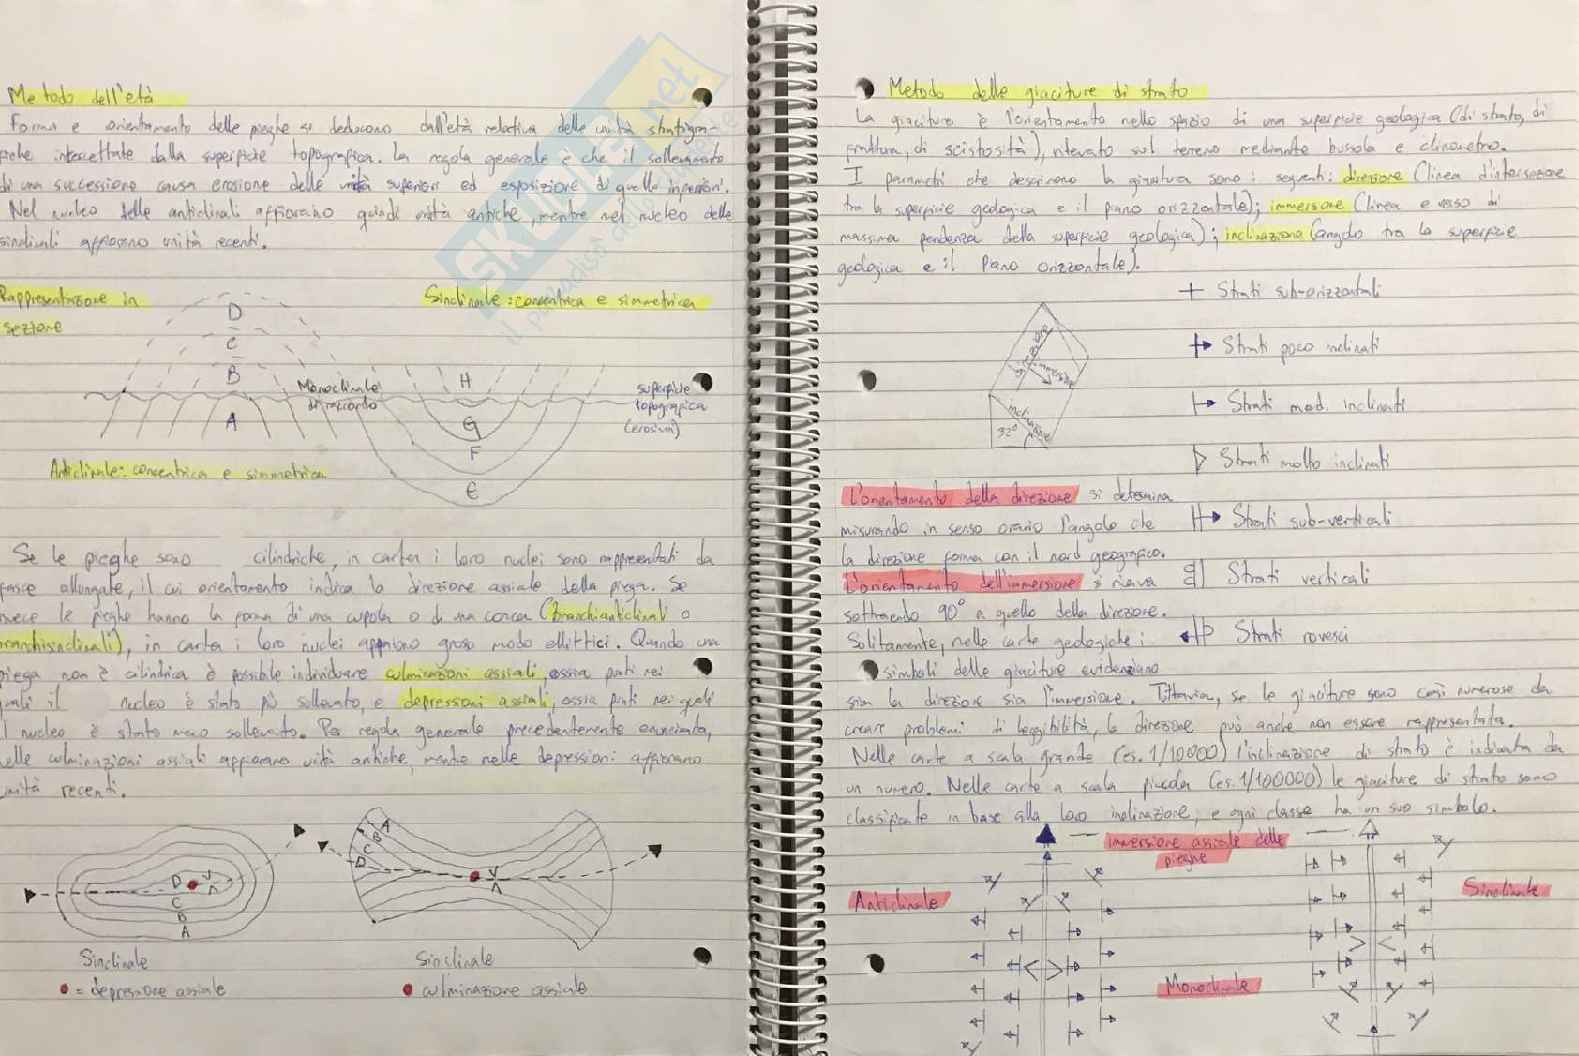 Metodo dell'età
Forma e orientamento delle pieghe si deducono dall'età relativa delle unità stratigra-
fiche intercettate dalla superficie topografica. La regola generale è che il sollevamento
di una successione causa erosione delle unità superiori ed esposizione di quelle inferiori.
Nel nucleo delle anticlinali affiorano quindi unità antiche, mentre nel nucleo delle
sinclinali affiorano unità recenti.
Rappresentazione in
sezione
Sinclinale: concentrica e simmetrica
D
C
B
A
Monoclinale
di raccordo
H
G
F
E
superficie
topografica
(erosium)
Anticlinale: concentrica e simmetrica
Se le pieghe sono cilindriche, in carta i loro nuclei sono rappresentati da
fasce allungate, il cui orientamento indica la direzione assiale della piega. Se
invece le pieghe hanno la forma di una cupola o di una conca (branchianticlinali o
branchisinclinali), in carta i loro nuclei appaiono grosso modo ellittici. Quando una
piega non è cilindrica è possibile individuare culminazioni assiali, ossia punti nei
quali il nucleo è stato più sollevato, e depressioni assiali, ossia punti nei quali
il nucleo è stato meno sollevato. Per regola generale precedentemente enunciata,
nelle culminazioni assiali affiorano unità antiche, mentre nelle depressioni affiorano
unità recenti.
D
C
B
A
A
B
C
D
Sinclinale
= depressione assiale
Sinclinale
culminazione assiale
Metodo delle giaciture di strato
La giacitura è l'orientamento nello spazio di una superficie geologica (di strato, di
frattura, di scistosità), rilevato sul terreno mediante bussola e clinometro.
I parametri che descrivono la giacitura sono i seguenti: direzione (linea d'intersezione
tra la superficie geologica e il piano orizzontale); immersione (linea e verso di
massima pendenza della superficie geologica); inclinazione (angolo tra la superficie
geologica e il piano orizzontale).
direzione
immersione
inclinazione
32°
Strati sub-orizzontali
Strati poco inclinati
Strati mod. inclinati
Strati molto inclinati
Strati sub-verticali
Strati verticali
Strati rovesci
L'orientamento della direzione si determina
misurando in senso orario l'angolo che
la direzione forma con il nord geografico.
L'orientamento dell'immersione si ricava
sottraendo 90° a quello della direzione.
Solitamente, nelle carte geologiche i
simboli delle giaciture evidenziano
sia la direzione sia l'immersione. Tuttavia, se le giaciture sono così numerose da
creare problemi di leggibilità, la direzione può anche non essere rappresentata.
Nelle carte a scala grande (es. 1/10000) l'inclinazione di strato è indicata da
un numero. Nelle carte a scala piccola (es. 1/100000) le giaciture di strato sono
classificate in base alla loro inclinazione, e ogni classe ha un suo simbolo.
immersione assiale delle
pieghe
Anticlinale
Sinclinale
Monoclinale
SKUOLA.net
il paradiso dello studente